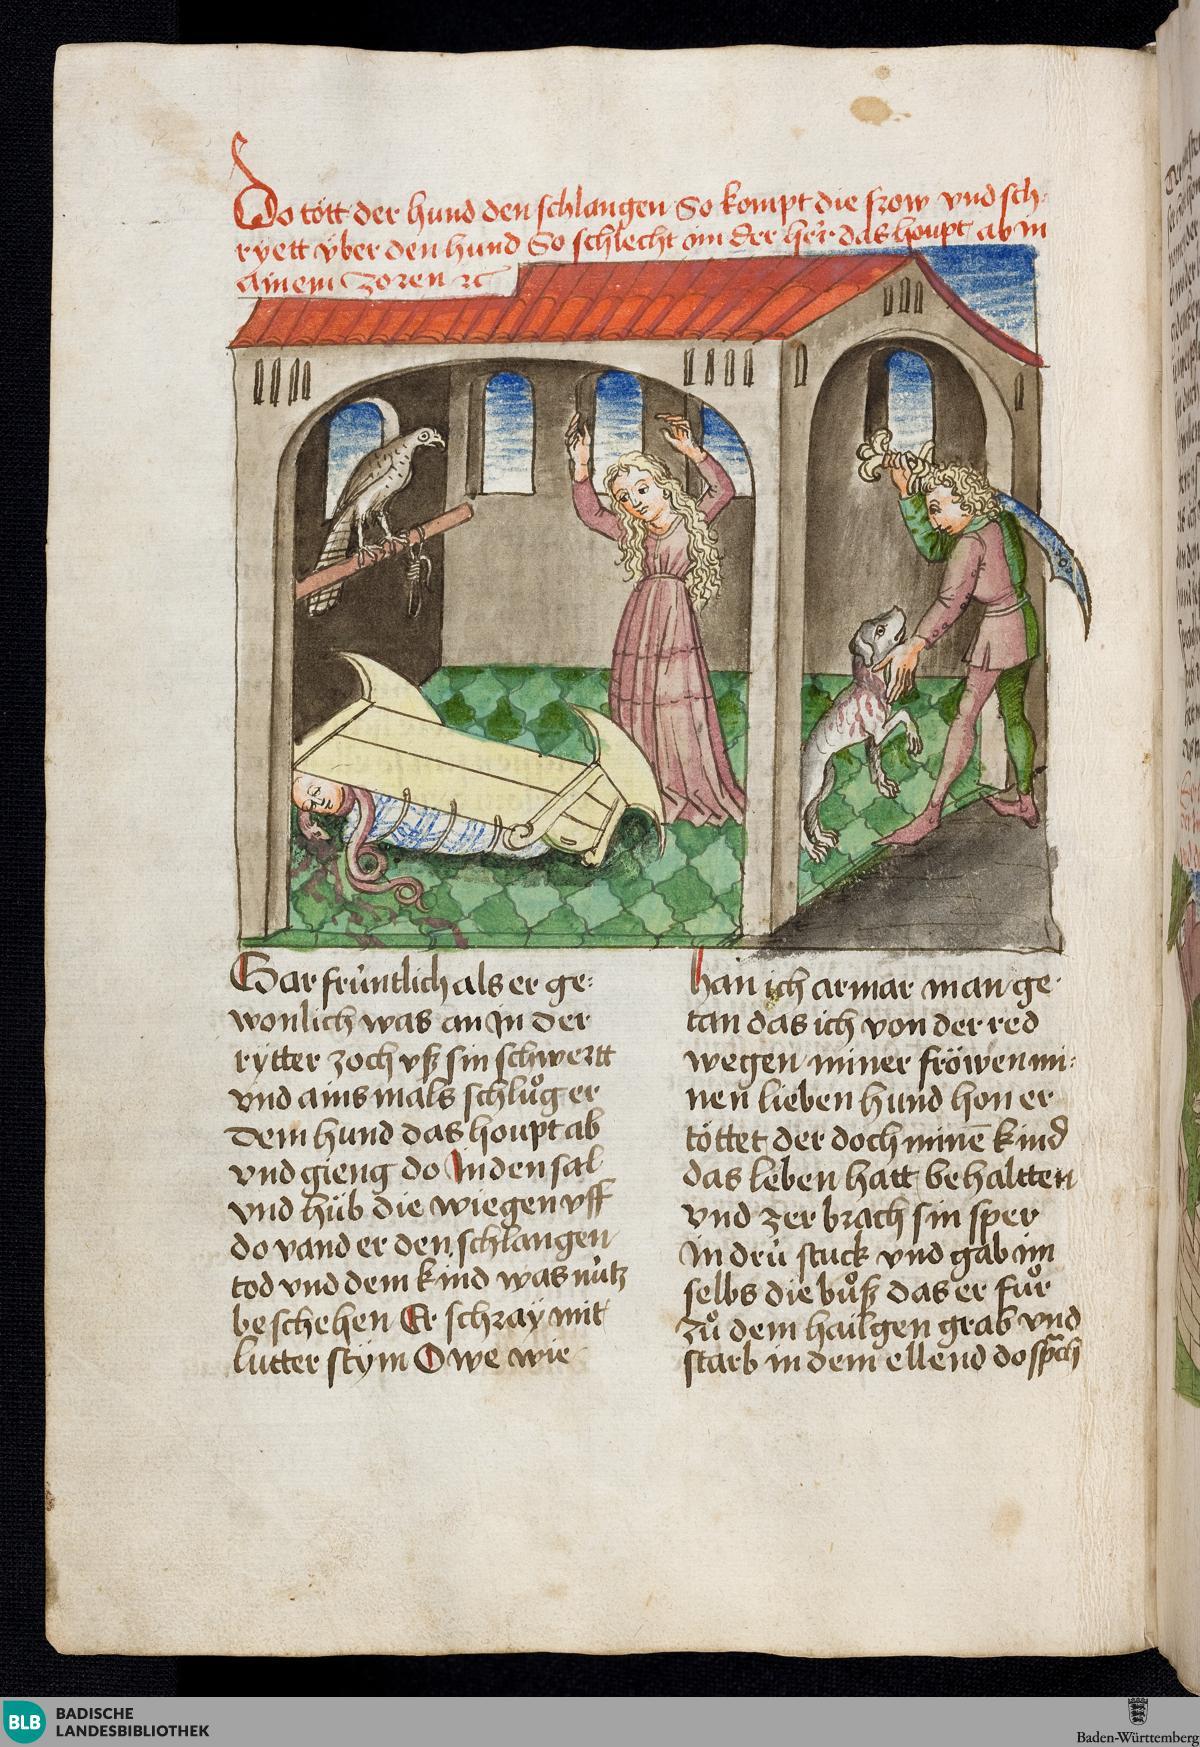 Do tött der hund den schlangen So kompt die frow vnd sch-
ryett v̈ber den hund So schlecht im der her das houpt ab in
ainem zoren ꝛc
Gar frùntlich als er ge-
wonlich was an in der
rytter zoch vß sin schwertt
vnd ains mals schluͦg er
dem hund das houpt ab
vnd gieng do In den sal
vnd hùb die wiegen vff
do vand er den schlangen
tod vnd dem kind was nùtz
beschehen Er schray mit
lutter stym Owe wie
han ich armar man ge-
tan das ich von der red
wegen miner fröwen mi-
nen lieben hund hon er
töttet der doch minē kind
das leben hatt behaltten
vnd zerbrach sin sper
In drù stuck vnd gab im
selbs die buͦß das er fuͦr
zuͦ dem hailgen grab vnd
starb in dem ellend do sprach
BLB BADISCHE
LANDESBIBLIOTHEK
Baden-Württemberg